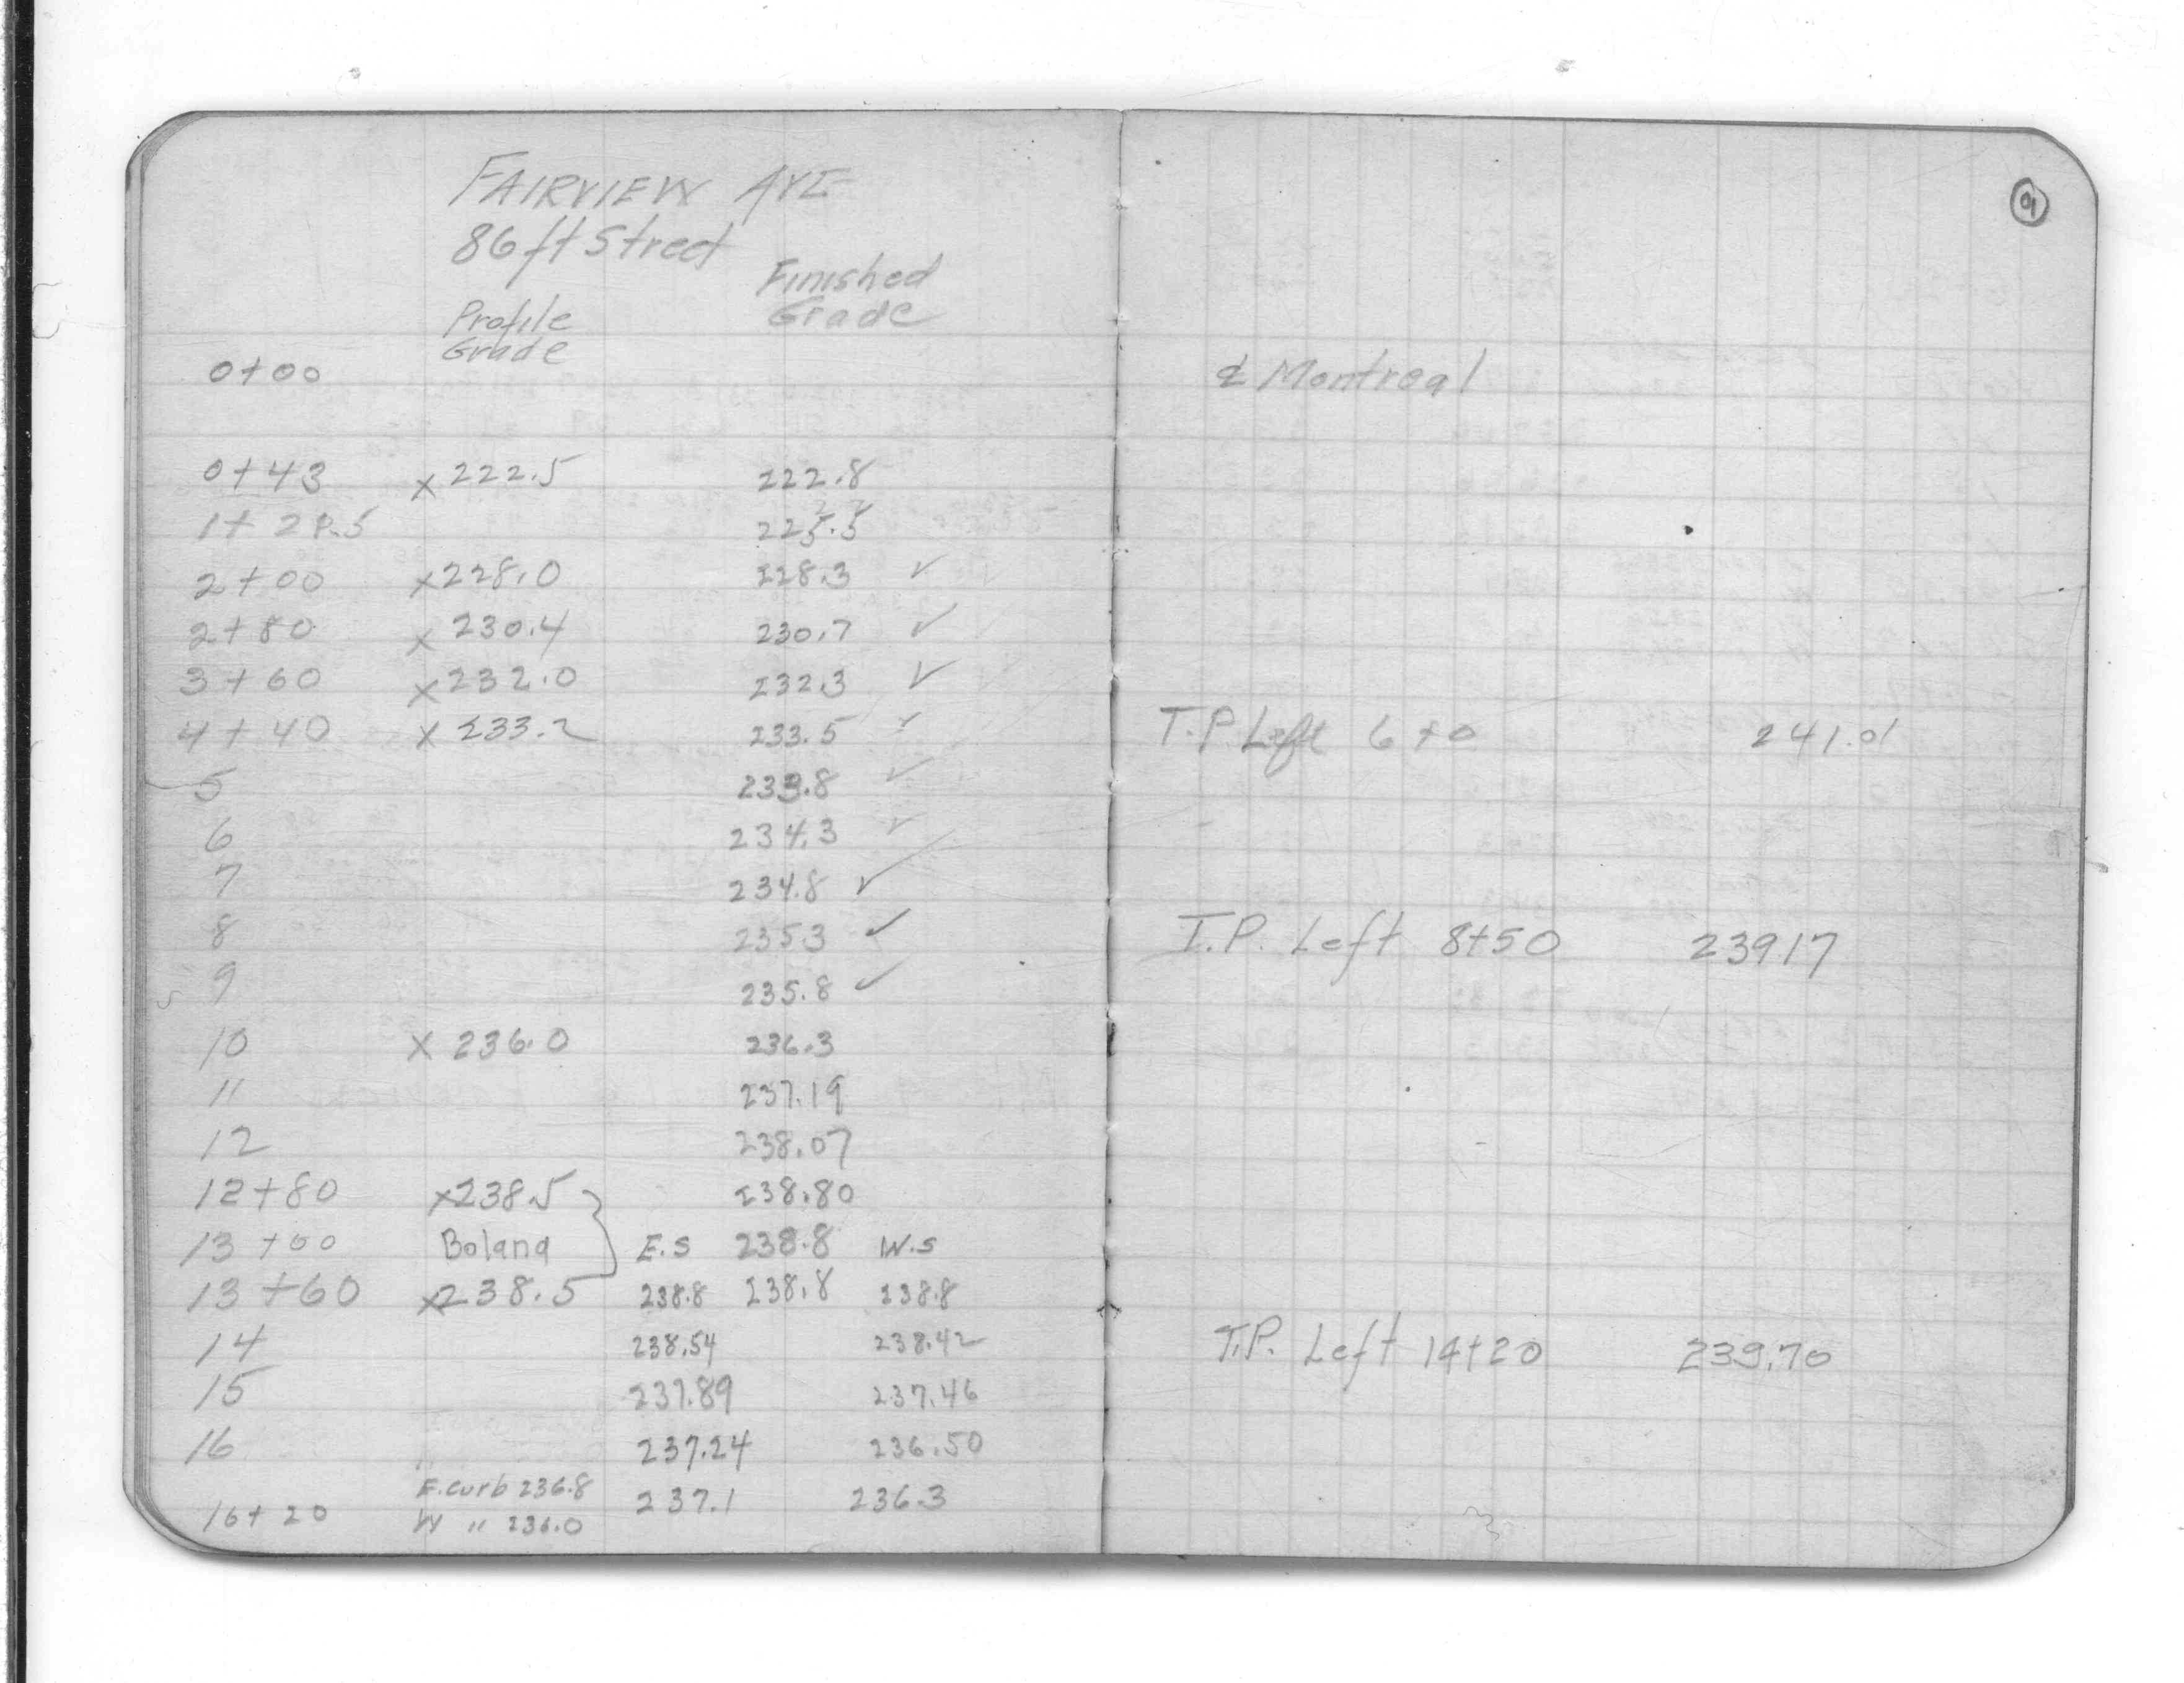 FAIRVIEW AVE
86 ft Street
Profile Grade
Finished Grade
0+00
0+43 x 222.5 222.8
1+ 2 .5 225.5
2+00 x 228.0 228.3 ✓
2+80 x 230.4 230.7 ✓
3+60 x 232.0 232.3 ✓
4+40 x 233.2 233.5 ✓
5 233.8 ✓
6 234.3 ✓
7 234.8 ✓
8 2353 ✓
9 235.8 ✓
10 x 236.0 236.3
11 237.19
12 238.07
12+80 x 238.5 238.80
13+00 Boland E.S 238.8 W.S
13+60 x 238.5 238.8 238.8 238.8
14 238.54 238.42
15 237.89 237.46
16 237.24 236.50
E. curb 236.8
16+20 237.1 236.3
W " 236.0
9
℄ Montreal
T.P. Left 6+0 241.01
T.P. Left 8+50 23917
T.P. Left 14+20 239.70